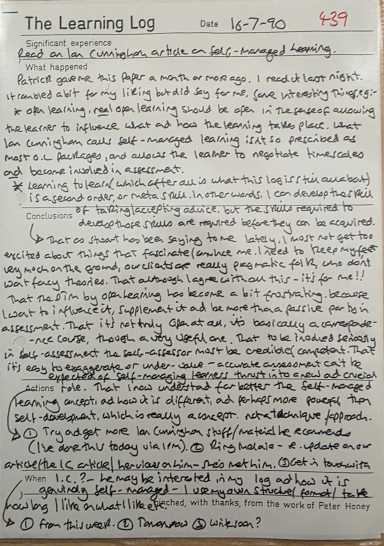 The Learning Log Date 16-7-90 439
Significant experience
Read an Ian Cunningham article on Self-Managed Learning.
What happened
Patrick gave me this paper a month or more ago. I read it last night.
It rambled a bit for my liking but did say for me, some interesting things, e.g:-
* open learning, real open learning should be open in the sense of allowing
the learner to influence what and how the learning takes place. What
Ian Cunningham calls self-managed learning isn't so prescribed as
most O.L packages, and allows the learner to negotiate timescales
and become involved in assessment.
* Learning to learn (which after all is what this log is all about)
is a second order, or meta skill. In other words, I can develop the skill
of talking/accepting advice, but the skills required to
Conclusions develop those skills are required before they can be acquired.
That as Stuart has been saying to me lately, I must not get too
excited about things that fascinate/ me. I need to keep my feet
very much on the ground, our clients are really pragmatic folk, who don't
want fancy theories. That although I agree with all this - it's for me!!
That the by open learning has become a bit frustrating, because
I want to influence it, supplement it and be more than a passive party in
assessment. That it's not truly open at all, it's basically a corresponde-
-nce course, though a very useful one. That to be involved seriously
in self-assessment the self-assessor must be credible/competent. That
it's easy to exaggerate or under-value - accurate assessment can't be
expected of self-managing learners thrust into a new and crucial
Actions role. That I now understand far better the Self-managed
learning concept and how it is different, and perhaps more powerful than
self-development, which is really a concept not a technique/approach.
① Try and get more Ian Cunningham stuff/material he recommends
(I've done this today via ). ② Ring - update on our
article/the IC article/her views on him - she's met him. ③ Get in touch with
When I.C.? - he may be interested in my log and how it is
genuinely self-managed - I use my own structure/format/take
how long I like on what I like etc.
Pinched, with thanks, from the work of Peter Honey
① From this week. ② Tomorrow ③ Within soon?